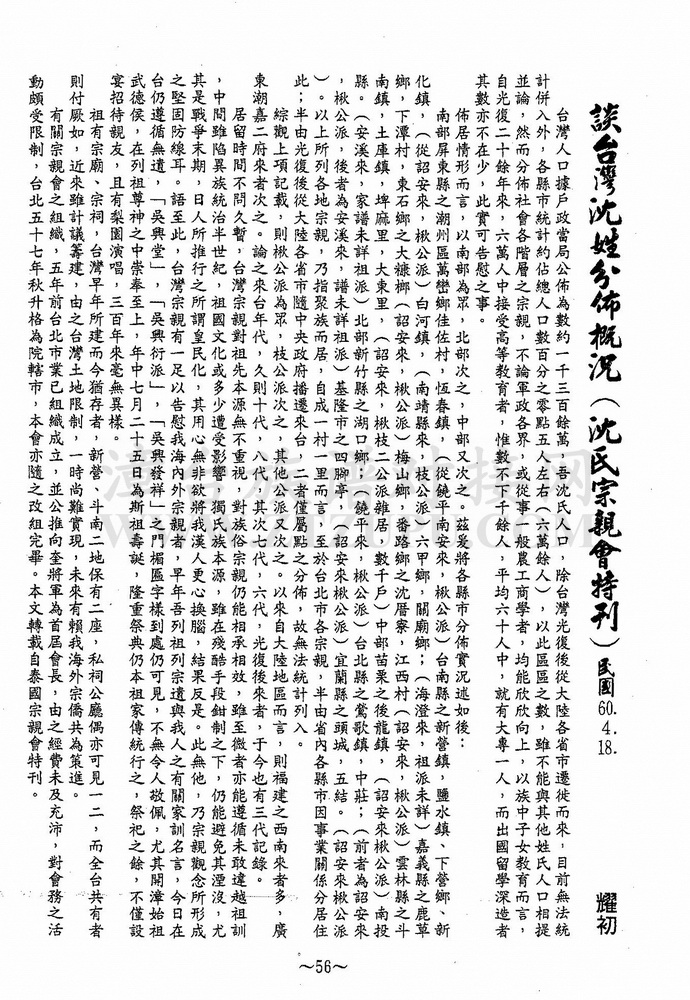 談台灣沈姓分佈概況(沈氏宗親會特刊)民國60.4.18.
耀初
台灣人口據戶政當局公佈為數約一千三百餘萬,吾沈氏人口,除台灣光復後從大陸各省市遷徙而來,目前無法統
計併入外,各縣市統計約佔總人口數百分之零點五人左右(六萬餘人),以此區區之數,雖不能與其他姓氏人口相提
並論,然而分佈社會各階層之宗親,不論軍政各界,或從事一般農工商學者,均能欣欣向上,以族中子女教育而言,
自光復二十餘年來,六萬人中接受高等教育者,惟數不下千餘人,平均六十人中,就有大專一人,而出國留學深造者
其數亦不在少,此實可告慰之事。
佈居情形而言,以南部為眾,北部次之,中部又次之。茲爰將各縣市分佈實況述如後:
南部屏東縣之潮州區萬巒鄉佳佐村,恆春鎮,(從饒平南安來,楸公派)台南縣之新營鎮,鹽水鎮、下營鄉、新
化鎮,(從詔安來,楸公派)白河鎮,(南靖縣來,枝公派)六甲鄉,關廟鄉;(海澄來,祖派未詳)嘉義縣之鹿草
鄉,下潭村,東石鄉之大槺榔(詔安來,楸公派)梅山鄉,番路鄉之沈厝寮,江西村(詔安來,楸公派)雲林縣之斗
南鎮,土庫鎮,埤麻里,大東里,(詔安來,楸枝二公派雜居,數千戶)中部苗栗之後龍鎮,(詔安來楸公派)南投
縣。(安溪來,家譜未詳祖派)北部新竹縣之湖口鄉(饒平來,楸公派)台北縣之鶯歌鎮,中莊;(前者為詔安來
,楸公派,後者為安溪來,譜未詳祖派)基隆市之四腳亭,(詔安來楸公派)宜蘭縣之頭城,五結。(詔安來楸公派
)。以上所列各地宗親,乃指聚族而居,自成一村一里而言,至於台北市各宗親,半由省內各縣市因事業關係分居住
此;半由光復後從大陸各省市隨中央政府播遷來台,二者僅屬點之分佈,故無法統計列入。
綜觀上項記載,則楸公派為眾,枝公派次之,其他公派又次之。以來自大陸地區而言,則福建之西南來者多,廣
東潮嘉二府來者次之。論之來台年代,久則十代,八代,其次七代,六代,光復後來者,于今也有三代記錄。
居留時間不問久暫,台灣宗親對祖先本源無不重視,對族俗宗親仍能相承相效,雖至微者亦能遵循未敢違越祖訓
,中間雖陷異族統治半世紀,祖國文化或多少遭受影響,獨氏族本源,雖在殘酷手段鉗制之下,仍能避免其湮沒,尤
其是戰爭末期,日人所推行之所謂皇民化,其用心無非欲將我漢人更心換腦,結果反是。此無他,乃宗親觀念所形成
之堅固防線耳。語至此,台灣宗親有一足以告慰我海內外宗親者,早年吾列祖列宗遺與我人之有關家訓名言,今日在
台仍遵循無遺,「吳興堂」,「吳興衍派」,「吳興發祥」之門楣區字樣到處仍可見,不無令人敬佩,尤其開漳始祖
武德侯,在列祖尊神之中崇奉至上,年中七月二十五日為斯祖壽誕,隆重祭典仍本祖家傳統行之,祭祀之餘,不僅設
宴招待親友,且有梨園演唱,三百年來毫無異樣。
祖有宗廟、宗祠,台灣早年所建而今猶存者,新營、斗南二地保有二座,私祠公廳偶亦可見一二,而全台共有者
則付厥如,近來雖計議籌建,由之台灣土地限制,一時尚難實現,未來有賴我海外宗僑共為策進。
有關宗親會之組織,五年前台北市業已組織成立,並公推向奎將軍為首屆會長,由之經費未及充沛,對會務之活
動頗受限制,台北五十七年秋升格為院轄市,本會亦隨之改組完畢。本文轉載自泰國宗親會特刊。
~56~